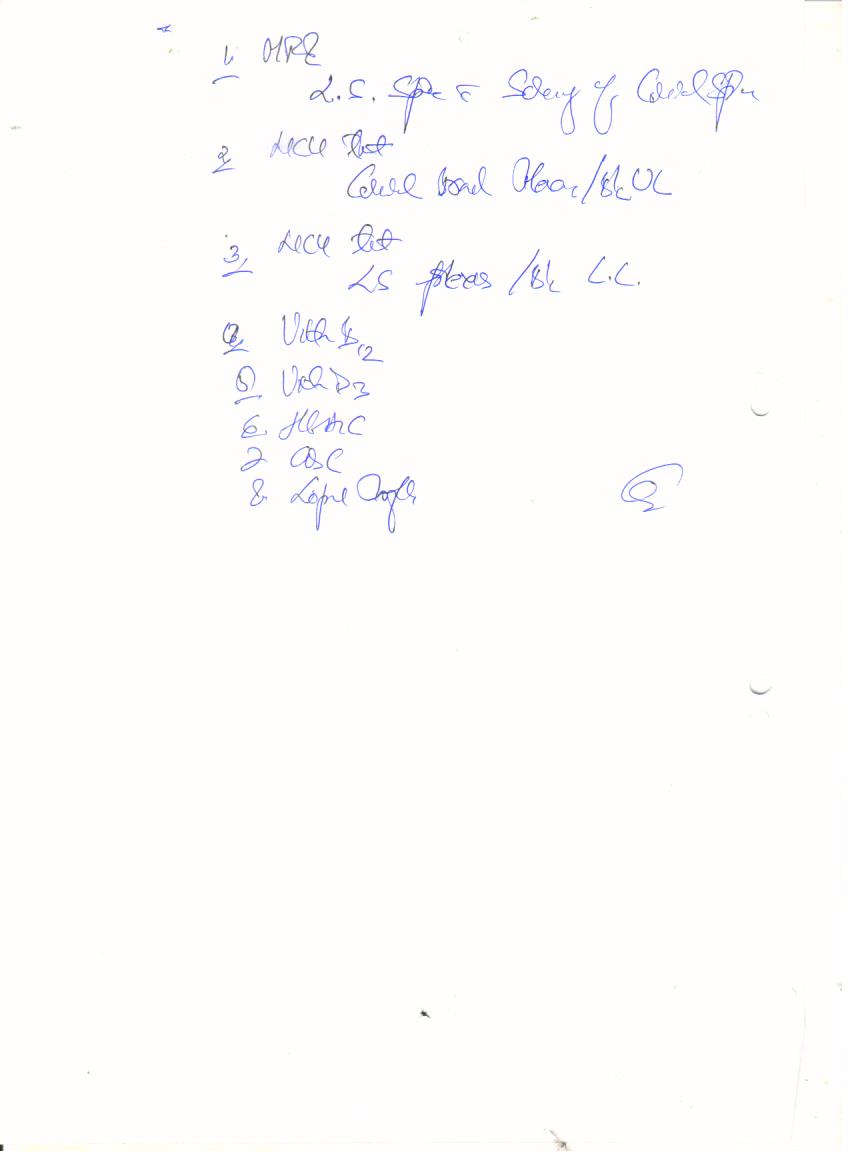 1. MRI
L.S. Spine c Screening of Cervical Spine
2 NCV test
Cervical /BL UL
3, NCV test
LS plexus /BL L.L.
4 Vitm B12
5) Vitm D3
6. HbA1C
7 CBC
8. Lipid Profile